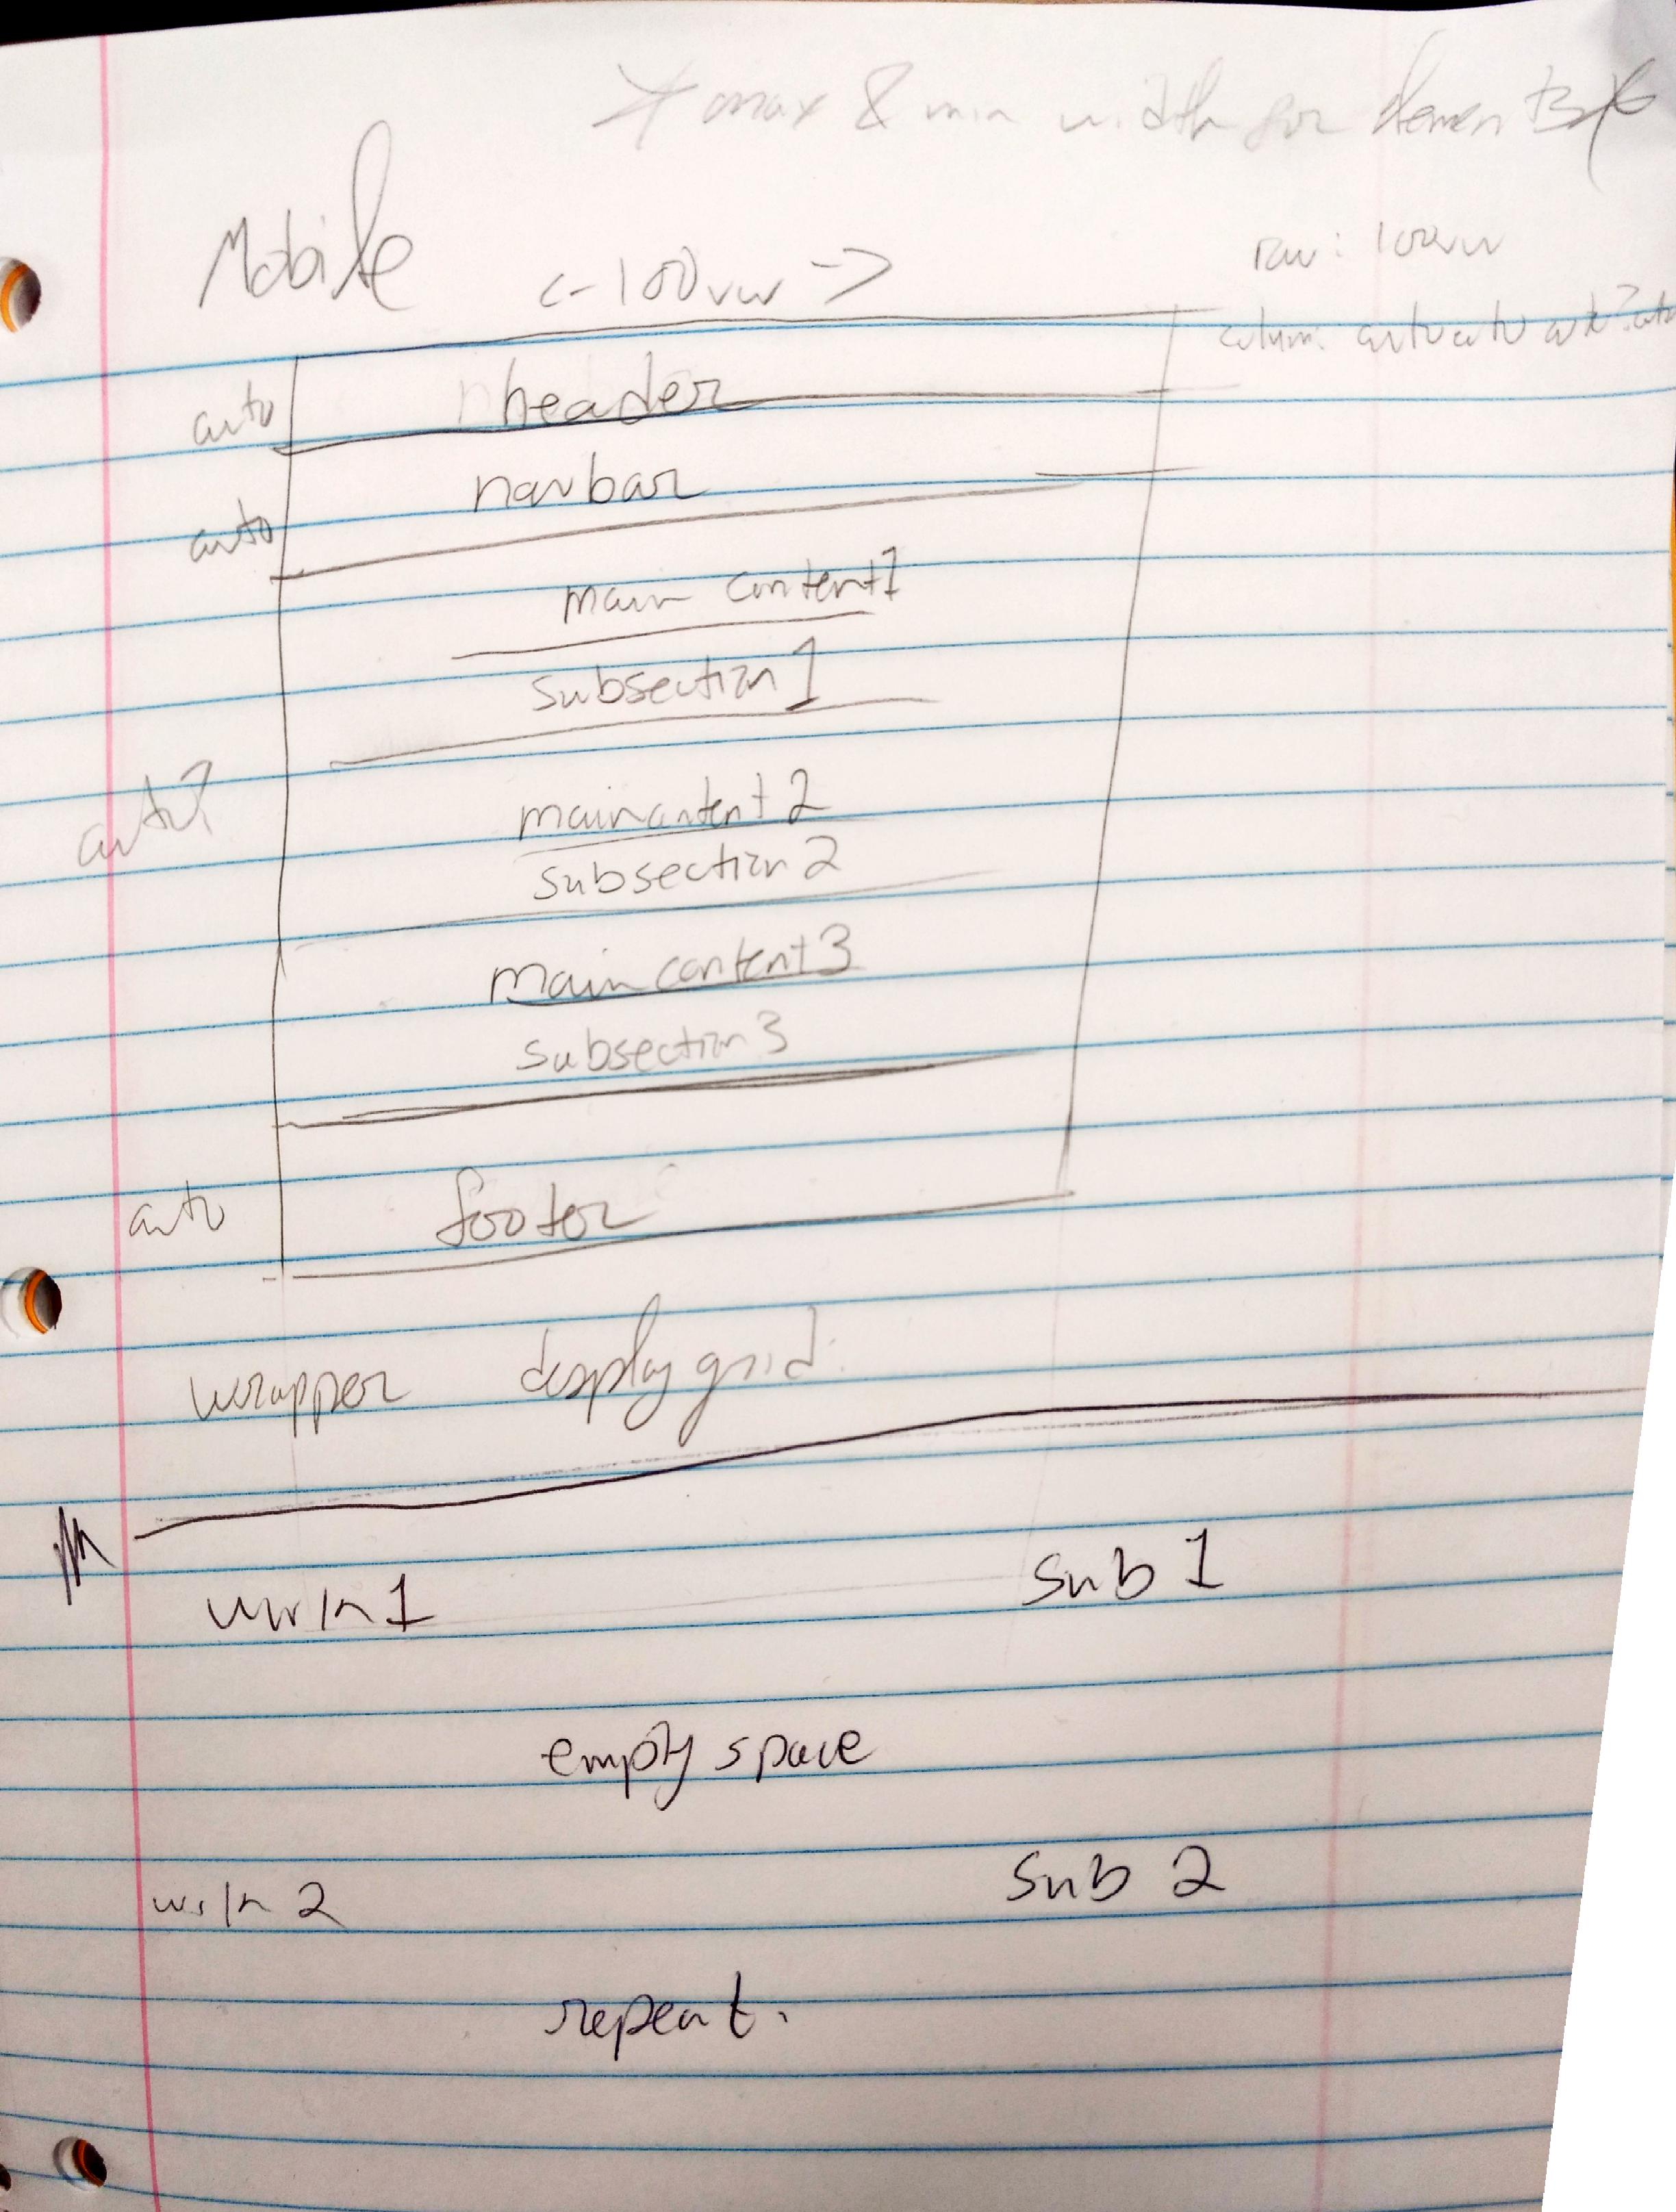 * max & min width for elements *
Mobile
<- 100vw ->
row: 100vw
column: auto auto auto? auto
auto header
auto navbar
main content 1
subsection 1
auto?
main content 2
subsection 2
main content 3
subsection 3
auto footer
wrapper display grid:
sub 1
empty space
sub 2
repeat.